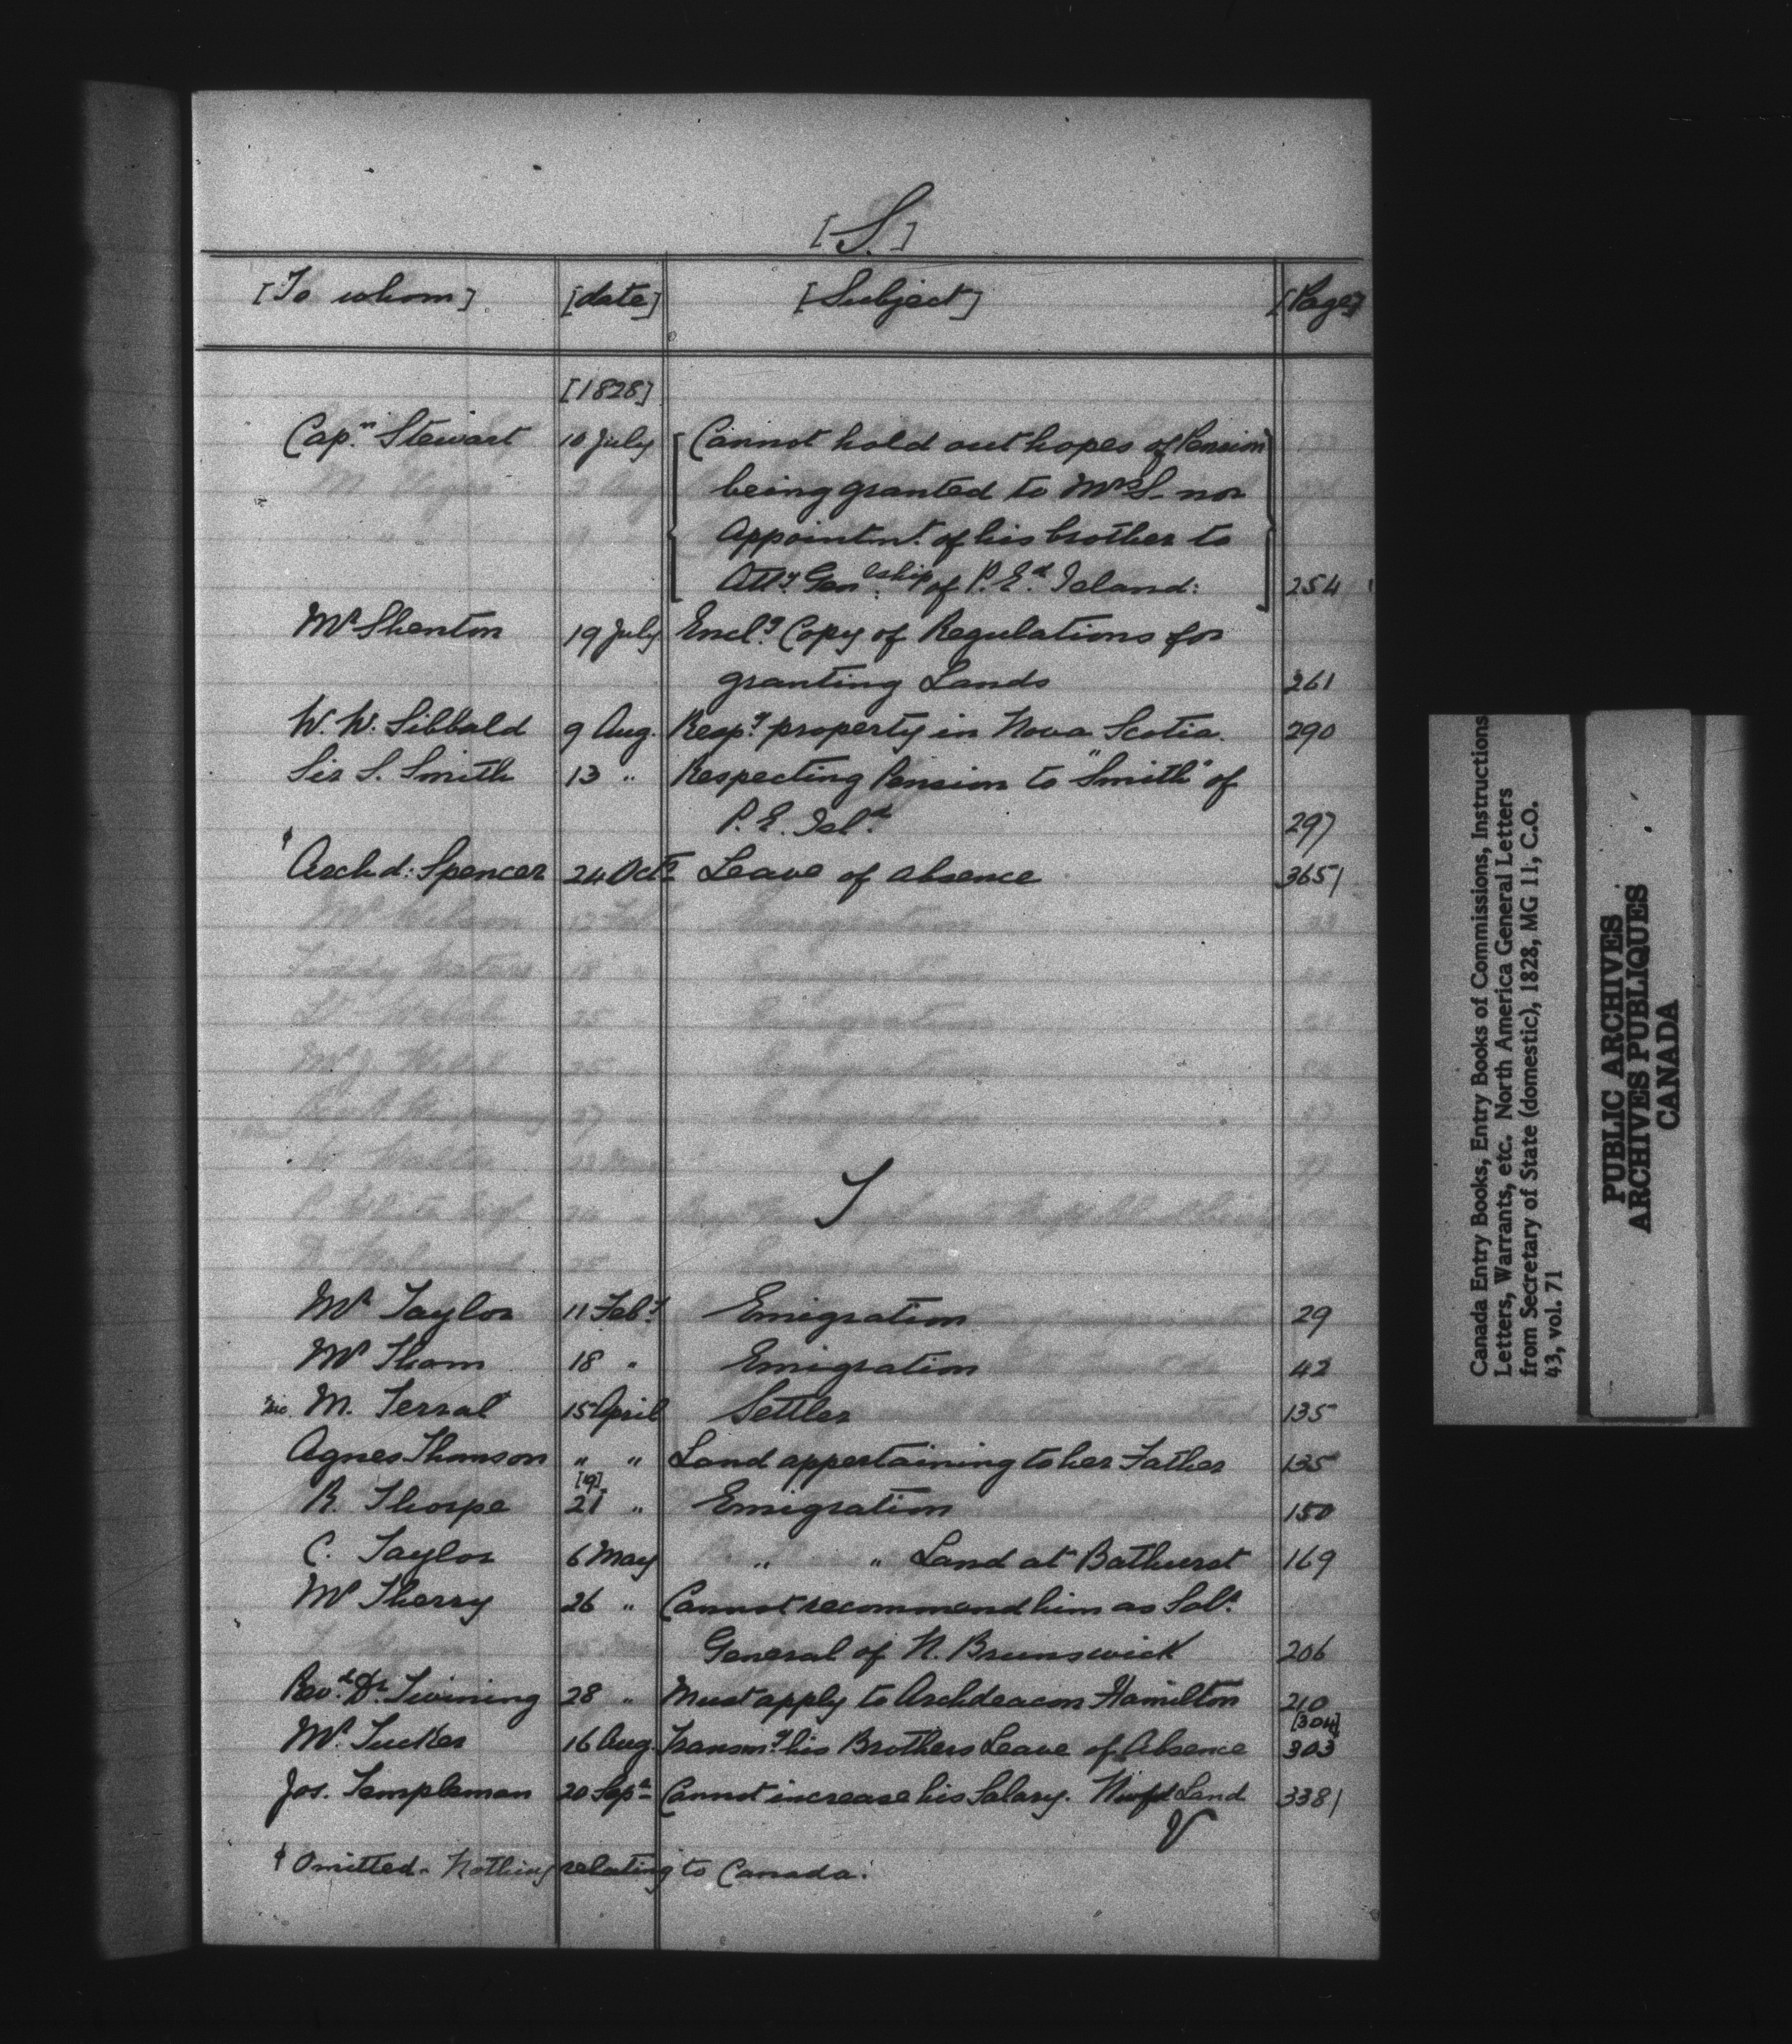 [S.]
[To whom] [date] [Subject] [Page]
[1828]
Cap.n Stewart 10 July Cannot hold out hopes of Pension
being granted to Mrs S. nor
Appointmt. of his brother to
Atty Genlship of P. Ed. Island: 254
Mr Shenton 19 July Enclg Copy of Regulations for
granting Lands 261
W. W. Sibbald 9 Aug. Respg property in Nova Scotia. 290
Sir S. Smith 13 " Respecting Pension to "Smith" of
P. E. Isld. 297
Archd: Spencer 24 Octr Leave of absence 365
T
Mr Taylor 11 Feby Emigration 29
Mr Thom 18 " Emigration 42
M. Terral 15 April Settler 135
Agnes Thomson " " Land appertaining to her Father 135
[19]
R. Thorpe 21 " Emigration 150
C. Taylor 6 May " " Land at Bathurst 169
Mr Therry 26 " Cannot recommend him as Solr.
General of N. Brunswick 206
Revd. Dr Twining 28 " Must apply to Archdeacon Hamilton 210
[304]
Mr. Tucker 16 Aug. Transmg his Brothers Leave of Absence 303
Jos. Templeman 20 Sepr Cannot increase his Salary. Newfd Land 338
Omitted. Nothing relating to Canada.
Canada Entry Books, Entry Books of Commissions, Instructions
Letters, Warrants, etc. North America General Letters
from Secretary of State (domestic), 1828, MG 11, C.O.
43, vol. 71
PUBLIC ARCHIVES
ARCHIVES PUBLIQUES
CANADA